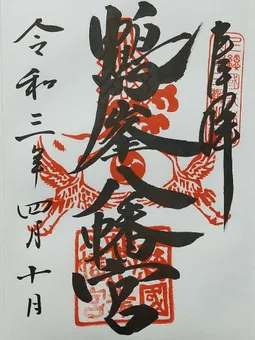 奉拝
鶴峯八幡宮
令和三年四月十日